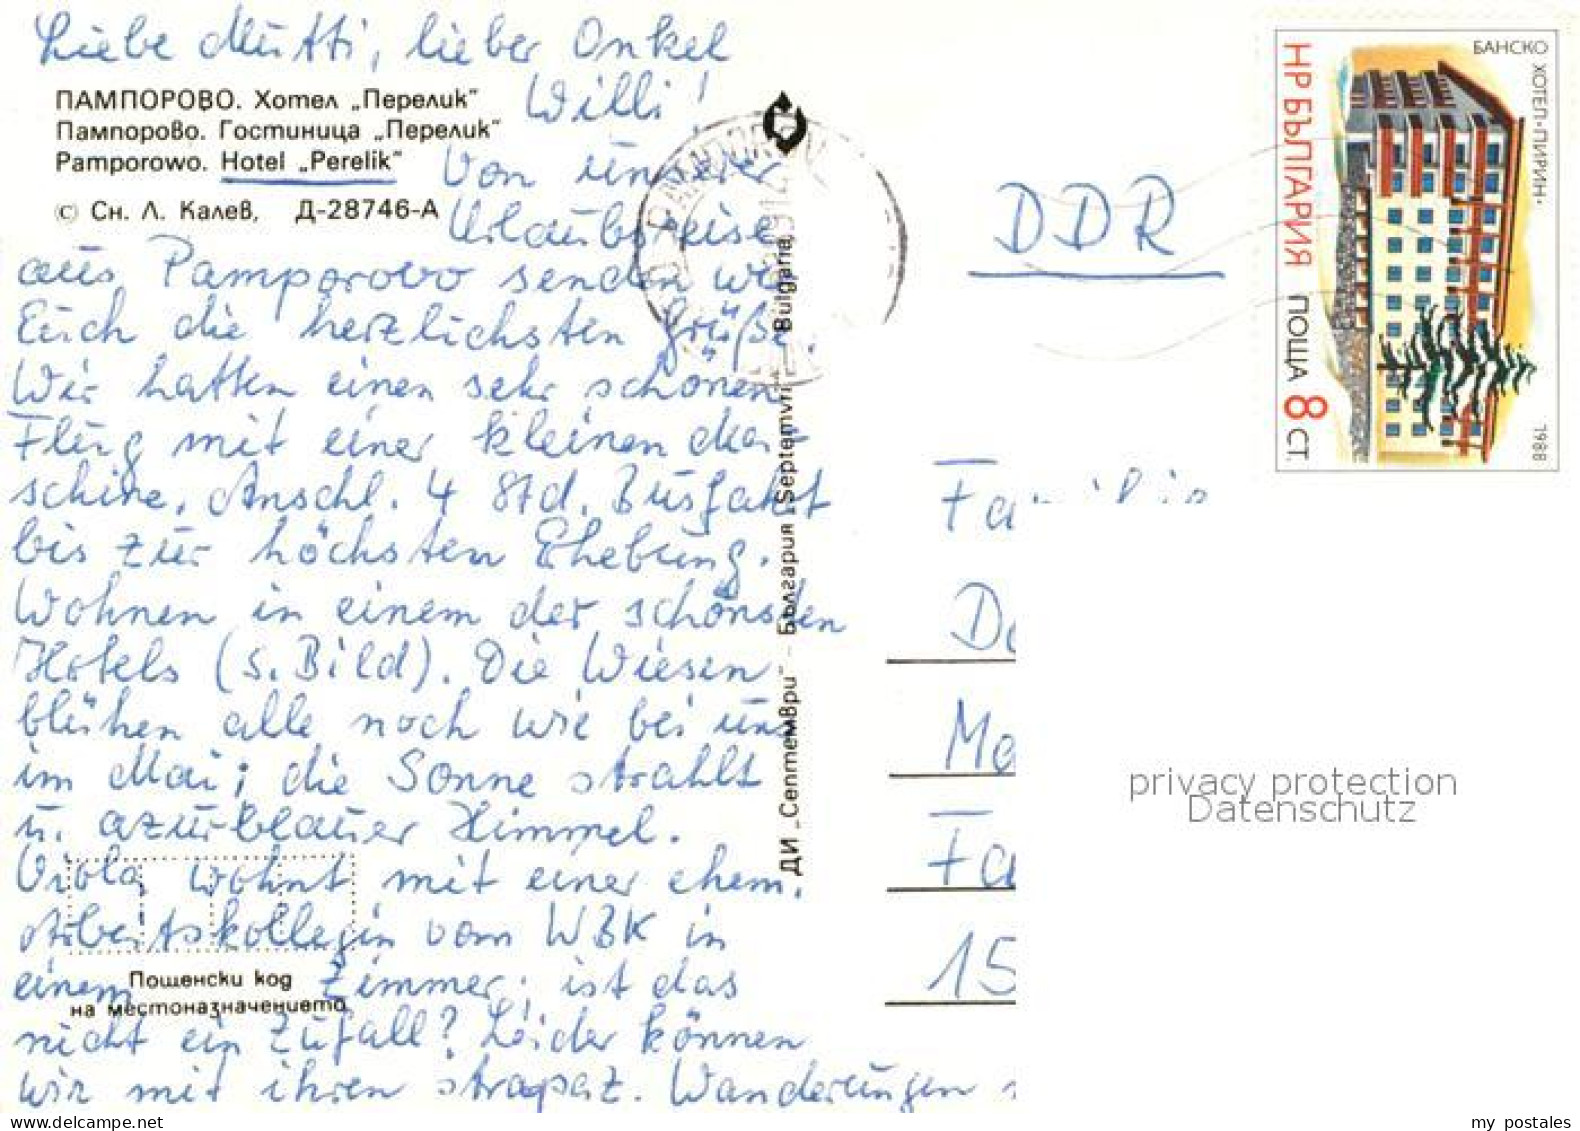 Liebe Mutti, lieber Onkel
Willi!
ПАМПОРОВО. Хотел „Перелик“
Пампорово. Гостиница „Перелик“
Pamporowo. Hotel „Perelik“
© Сн. Л. Калев, Д-28746-А
Von unserer
Urlaubsreise
aus Pamporovo senden wir
Euch die herzlichsten Grüße.
Wir hatten einen sehr schönen
Flug mit einer kleinen Ma-
schine, Anschl. 4 Std. Busfahrt
bis zur höchsten Ehebung.
Wohnen in einem der schönsten
Hotels (s. Bild). Die Wiesen
blühen alle noch wie bei uns
im Mai; die Sonne strahlt
u. azurblauer Himmel.
Viola wohnt mit einer ehem.
Arbeitskollegin vom WBK in
einem Zimmer; ist das
nicht ein Zufall? Leider können
wir mit ihren strapaz. Wanderungen
Пощенски код
на местоназначението
ДИ „Септември“ — България „Septemvri“ — Bulgaria
DDR
Familie
De
Ma
Fa
15
БАНСКО ХОТЕЛ·ПИРИН·
НР БЪЛГАРИЯ ПОЩА 8 СТ.
1988
privacy protection
Datenschutz
my postales